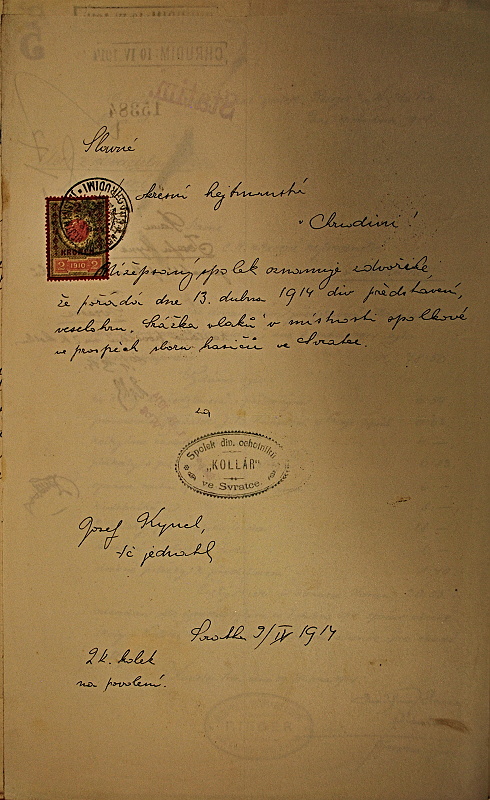 CHRUDIM 10 IV 1914
Statim.
15384
Slavné
okresní hejtmanství
v Chrudimi!
2 1910 2
Nížepsaný spolek oznamuje zdvořile
že pořádá dne 13. dubna 1914 div představení,
veselohru. Srážka vlaků v místnosti spolkové
ve prospěch sboru hasičů ve Svratce.
za
Spolek div. ochotníků
„KOLLÁR"
ve Svratce.
Josef Kyncl,
tč jednatel
Svratka 9/IV 1914
2 K. kolek
na povolení.